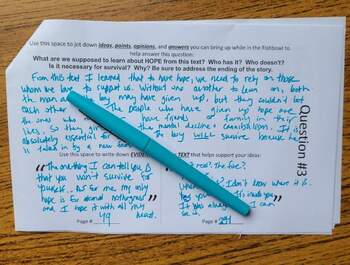 Use this space to jot down ideas, points, opinions, and answers you can bring up while in the Fishbowl to
help answer this question:
What are we supposed to learn about HOPE from this text? Who has it? Who doesn't?
Is it necessary for survival? Why? Be sure to address the ending of the story.
From this text I learned that to have hope, we need to rely on those
whom we love to support us. Without one another to lean on, both
the man boy may have given up, but they couldn't let
each other people who have given up hope are
the ones who have friends or family in their
lives. So they give mental decline + cannibalism. It is
absolutely essential for boy WILL survive because he's
taken in by a new
Question #3
Use this space to write down EVIDE TEXT that helps support your ideas:
"The one thing I can tell you is
that you won't survive for
yourself. As for me, my only
hope is for eternal nothingness
and I hope it with all my
heart.
real? The fire?
I don't know where it is.
It's inside you
It was always I can
Page # 49
Page #